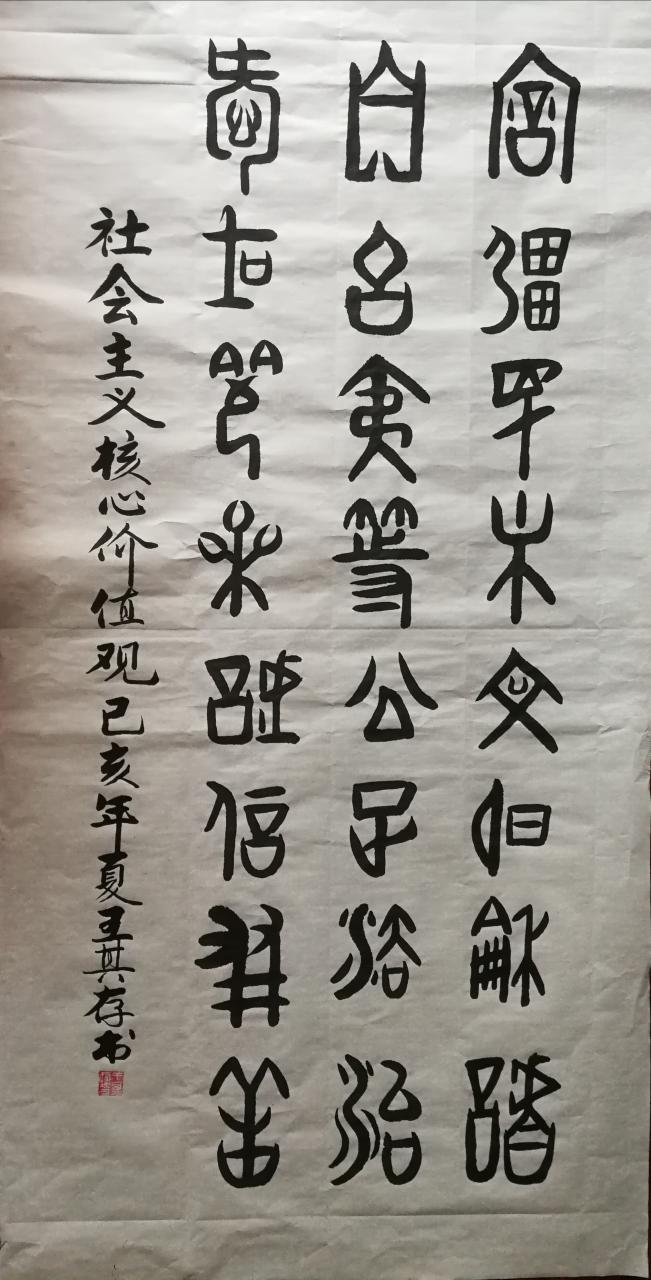 富彊民主文明龢諧
自由平等公正法治
愛國敬業誠信友善
社会主义核心价值观己亥年夏王其存书